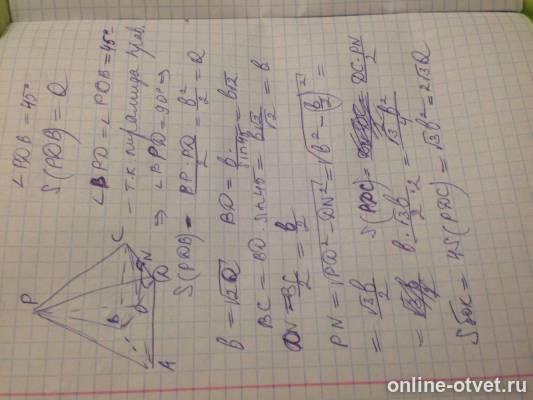 ∠PDB = 45°
S(PDB) = Q
P
C
B
O
N
D
A
∠BPD = ∠PDB = 45°
– т.к. пирамида прав.
⇒ ∠BPD = 90° ⇒
S(PDB) = BP·PD/2 = b²/2 = Q
b = √2Q BD = b/sin45 = b√2
BC = BD·sin45 = b√2/√2 = b
DN = BC/2 = b/2
PN = √PD² - DN² = √b² - (b/2)² =
= √3b/2 S(PDC) = DC·PN/2
= b·√3b/2·2 = √3b²/4
Sбок = 4S(PDC) = √3b² = 2√3Q
online-otvet.ru